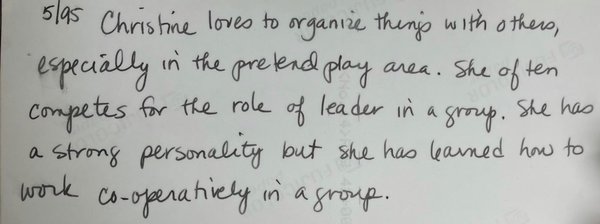 5/95 Christine loves to organize things with others,
especially in the pretend play area. She often
competes for the role of leader in a group. She has
a strong personality but she has learned how to
work co-operatively in a group.